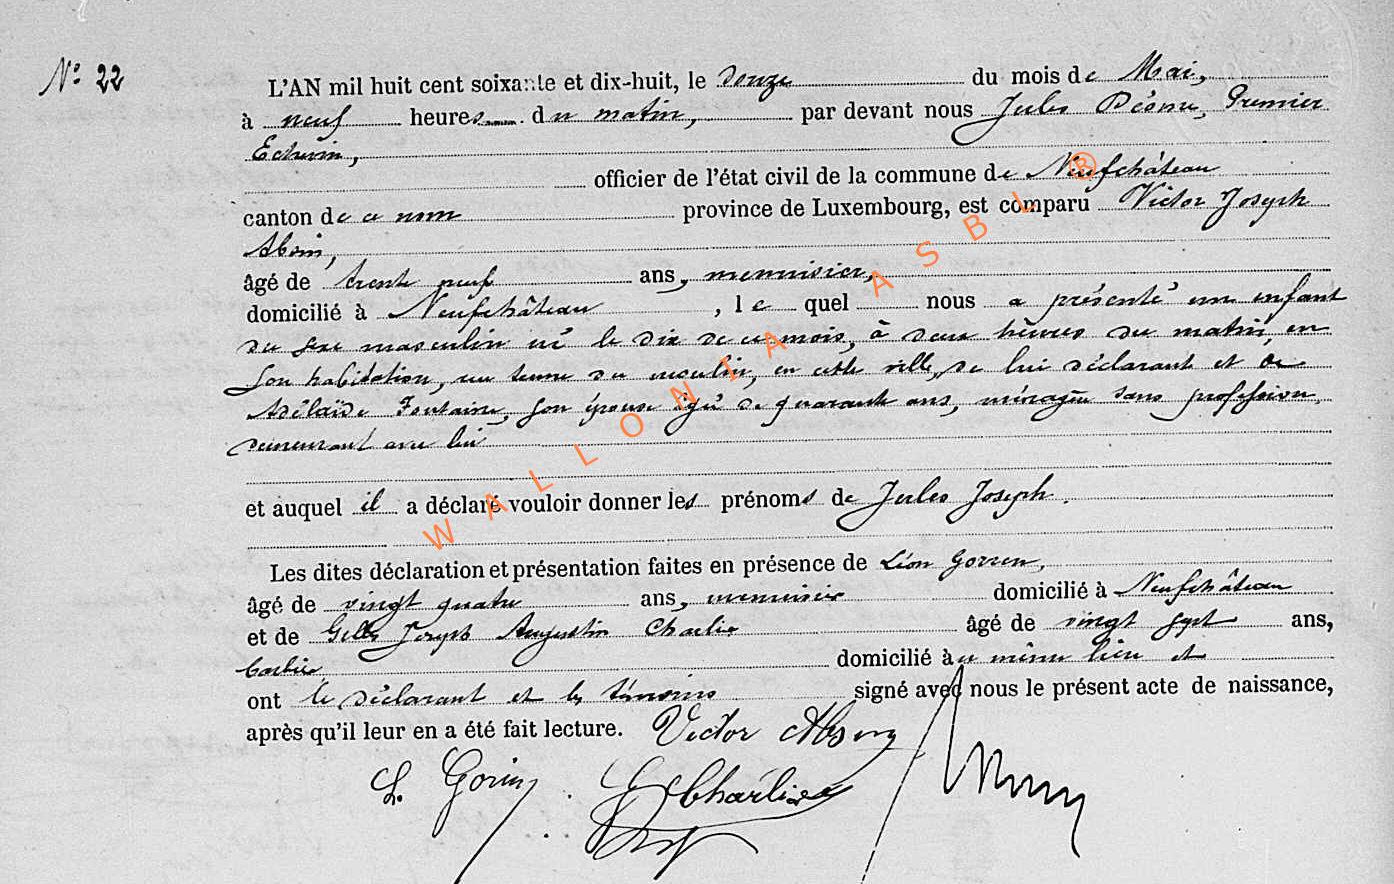 N° 22
L'AN mil huit cent soixante et dix-huit, le douze du mois de Mai,
à neuf heures du matin, par devant nous Jules Premier
Echevin,
officier de l'état civil de la commune de Neufchâteau
canton de ce nom province de Luxembourg, est comparu Victor Joseph
âgé de trente neuf ans, menuisier,
domicilié à Neufchâteau, lequel nous a présenté un enfant
du sexe masculin né le dix de ce mois, à deux heures du matin, en
son habitation, du moulin, en cette ville, de lui déclarant et de
Adélaïde Fontaine, son épouse âgée de quarante ans, ménagère sans profession,
demeurant avec lui
et auquel il a déclaré vouloir donner les prénoms de Jules Joseph.
Les dites déclaration et présentation faites en présence de Léon
âgé de vingt quatre ans, menuisier domicilié à Neufchâteau
et de Gilles Joseph Augustin Charlier âgé de vingt sept ans,
domicilié au même lieu et
ont le déclarant et les témoins signé avec nous le présent acte de naissance,
après qu'il leur en a été fait lecture. Victor
L. Charlier
WALLONIA ASBL ®